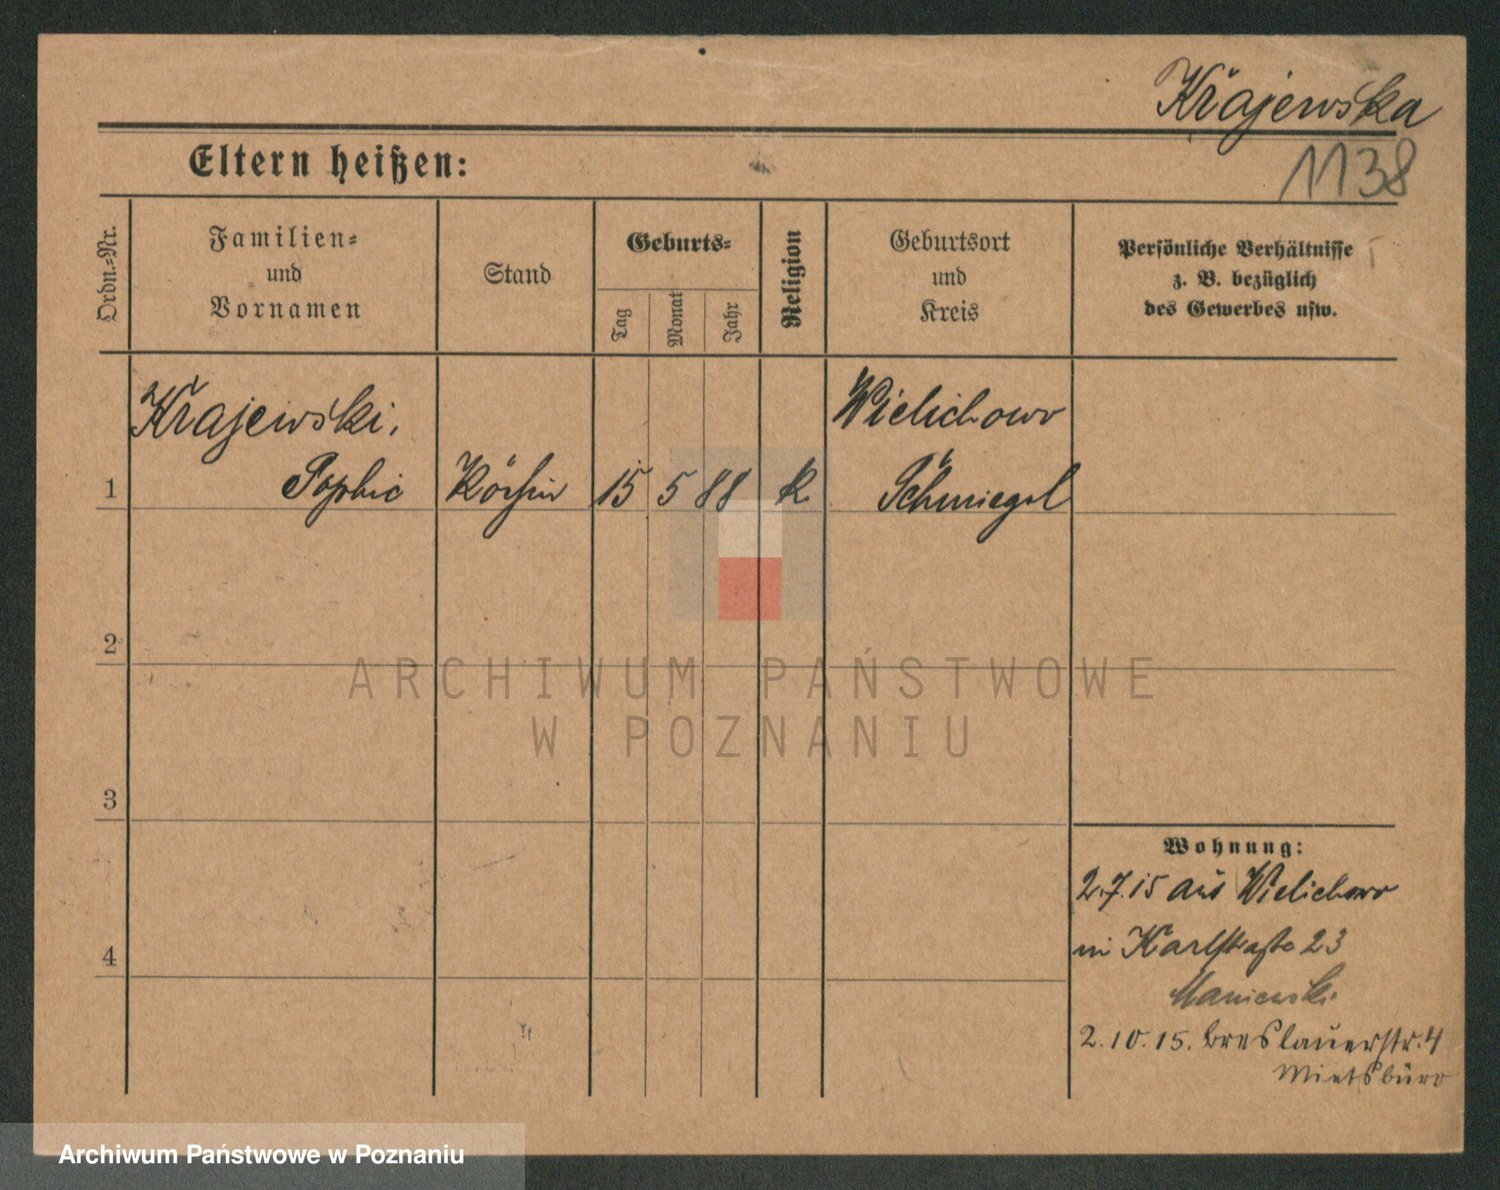 Krajewska
1138
Eltern heißen:
Ordn.-Nr.
Familien-
und
Vornamen
Stand
Geburts-
Tag
Monat
Jahr
Religion
Geburtsort
und
Kreis
Persönliche Verhältnisse
z. B. bezüglich
des Gewerbes usw.
Krajewski,
Wielichowo
1 Sophie Köchin 15 5 88 k Schmiegel
2
3
4
Wohnung:
2.7.15 aus Wielichowo
in Karlstraße 23
Maniewski
2.10.15. Breslauerstr. 4
Mietsbüro
ARCHIWUM PAŃSTWOWE
W POZNANIU
Archiwum Państwowe w Poznaniu